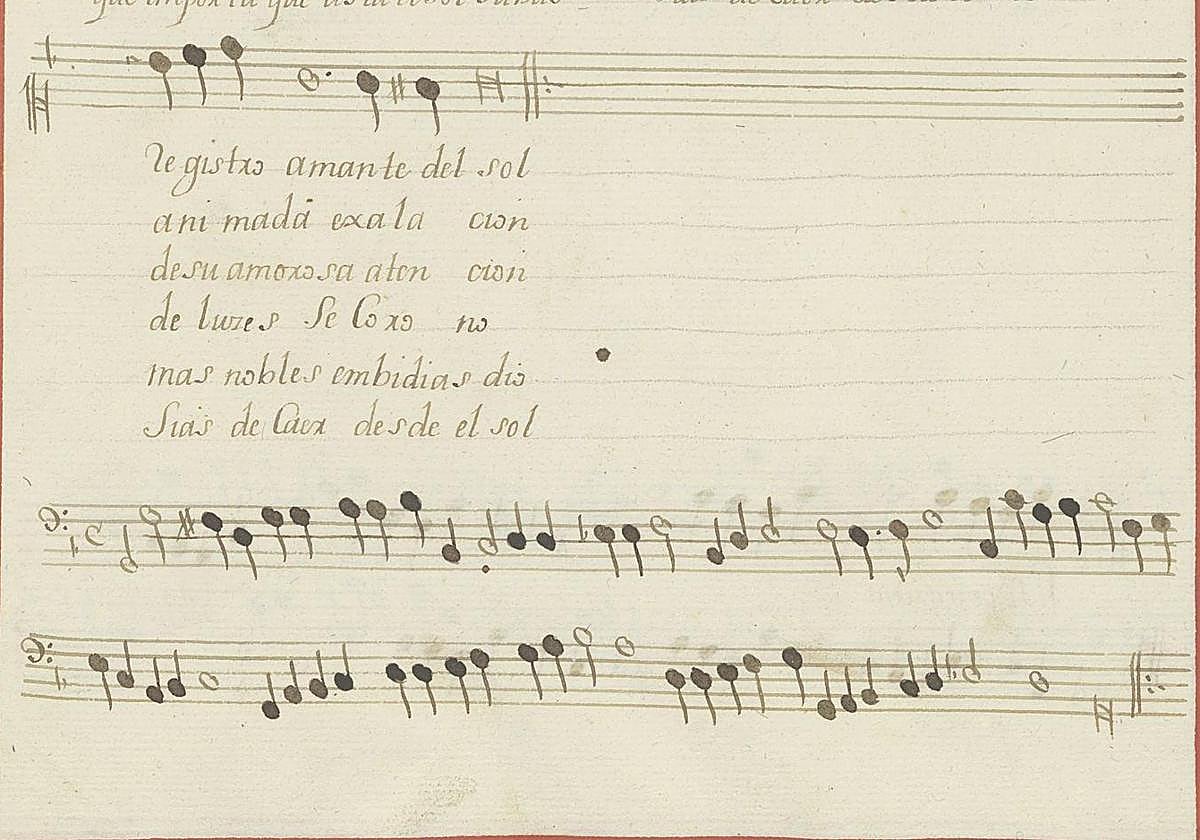 que importa que
Registro amante del sol
ani mada exala cion
de su amorosa aten cion
de luzes se Coro no
mas nobles embidias dio
Sias de Caer desde el sol